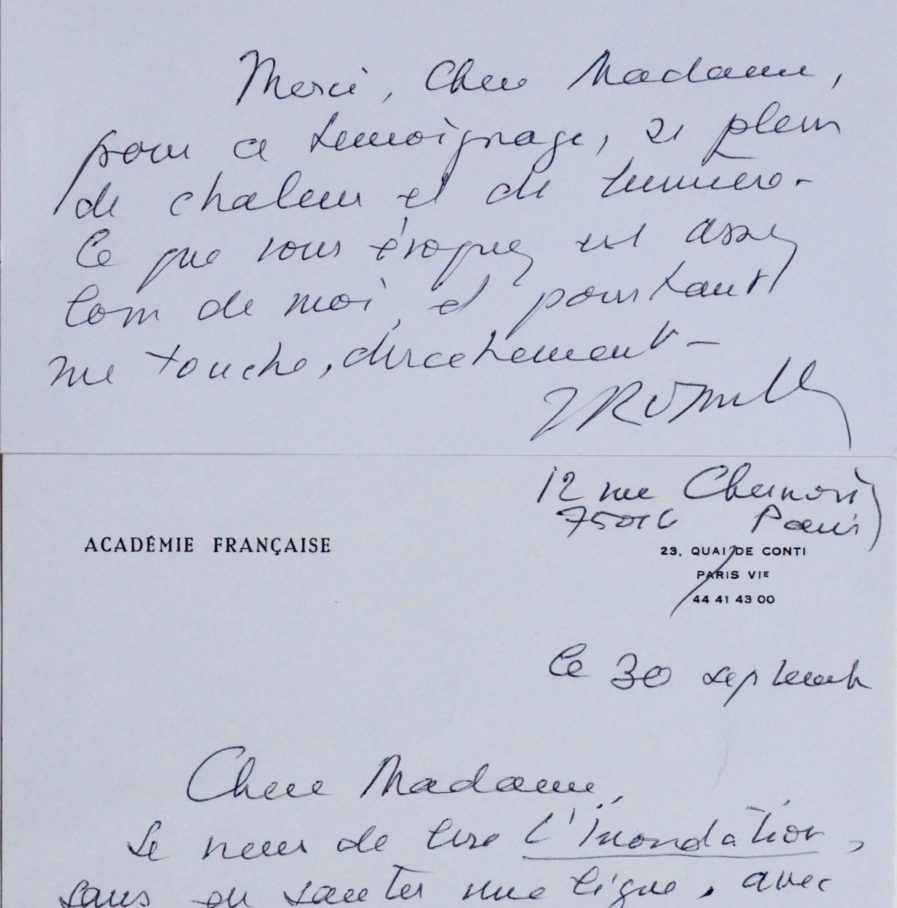 Merci, Chère Madame,
pour ce témoignage, si plein
de chaleur et de lumière -
Ce que vous évoquez est assez
loin de moi, et pourtant
me touche, directement -
JRomilly
12 rue Chernoviz
75016 Paris
ACADÉMIE FRANÇAISE
23, QUAI DE CONTI
PARIS VIE
44 41 43 00
le 30 septembre
Chère Madame,
Je viens de lire L'Inondation,
sans en sauter une ligne, avec